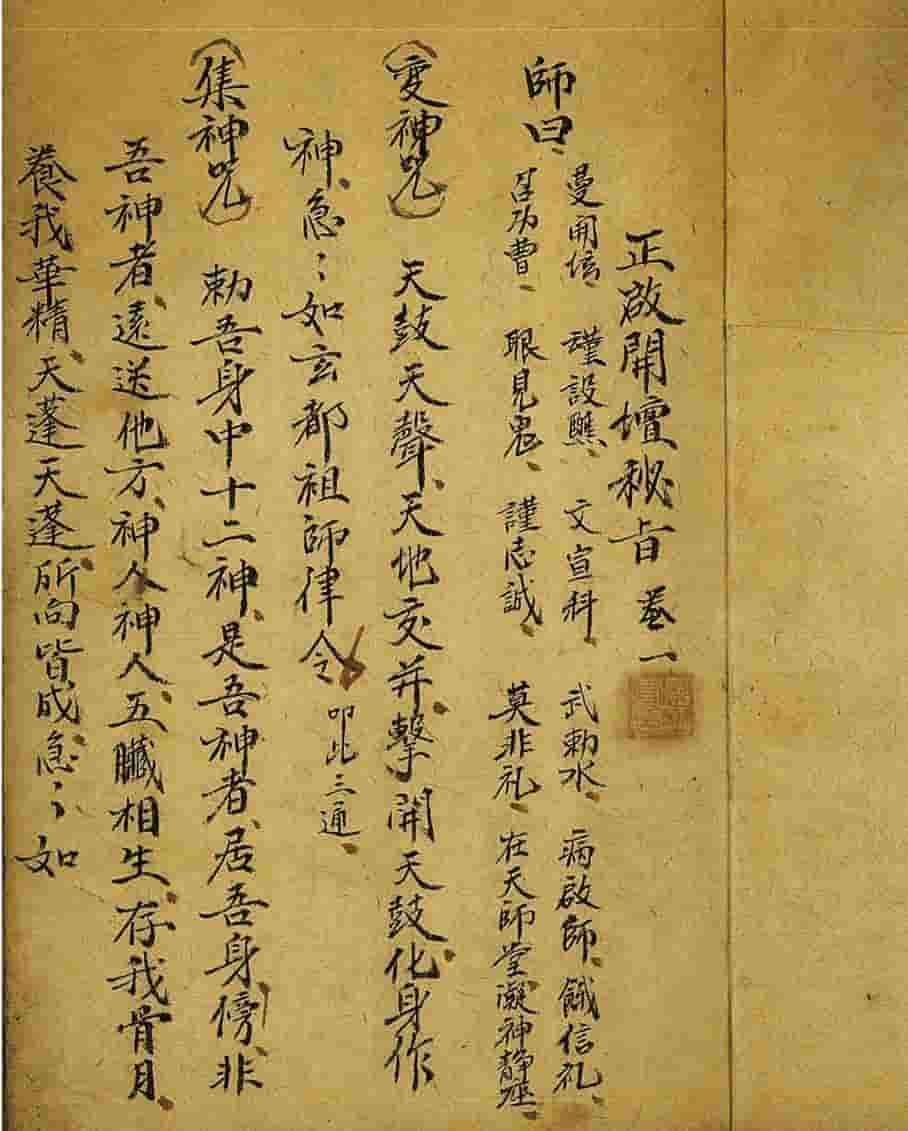 正啟開壇秘旨 卷一
師曰、
曼開信、 謹設醮、 文宣科、 武勅水、 病啟師、 餓信礼、
召功曹、 眼見鬼、 謹志誠、 莫非礼、 在天師堂凝神静座、
(変神咒) 天鼓天聲、天地交并、擊開天鼓、化身作
神、急〻如玄都祖師律令 叩此三通、
(集神咒) 勅吾身中十二神、是吾神者、居吾身傍、非
吾神者、遠送他方、神人神人、五臟相生、存我骨月、
養我華精、天蓬天蓬、所向皆成、急〻如